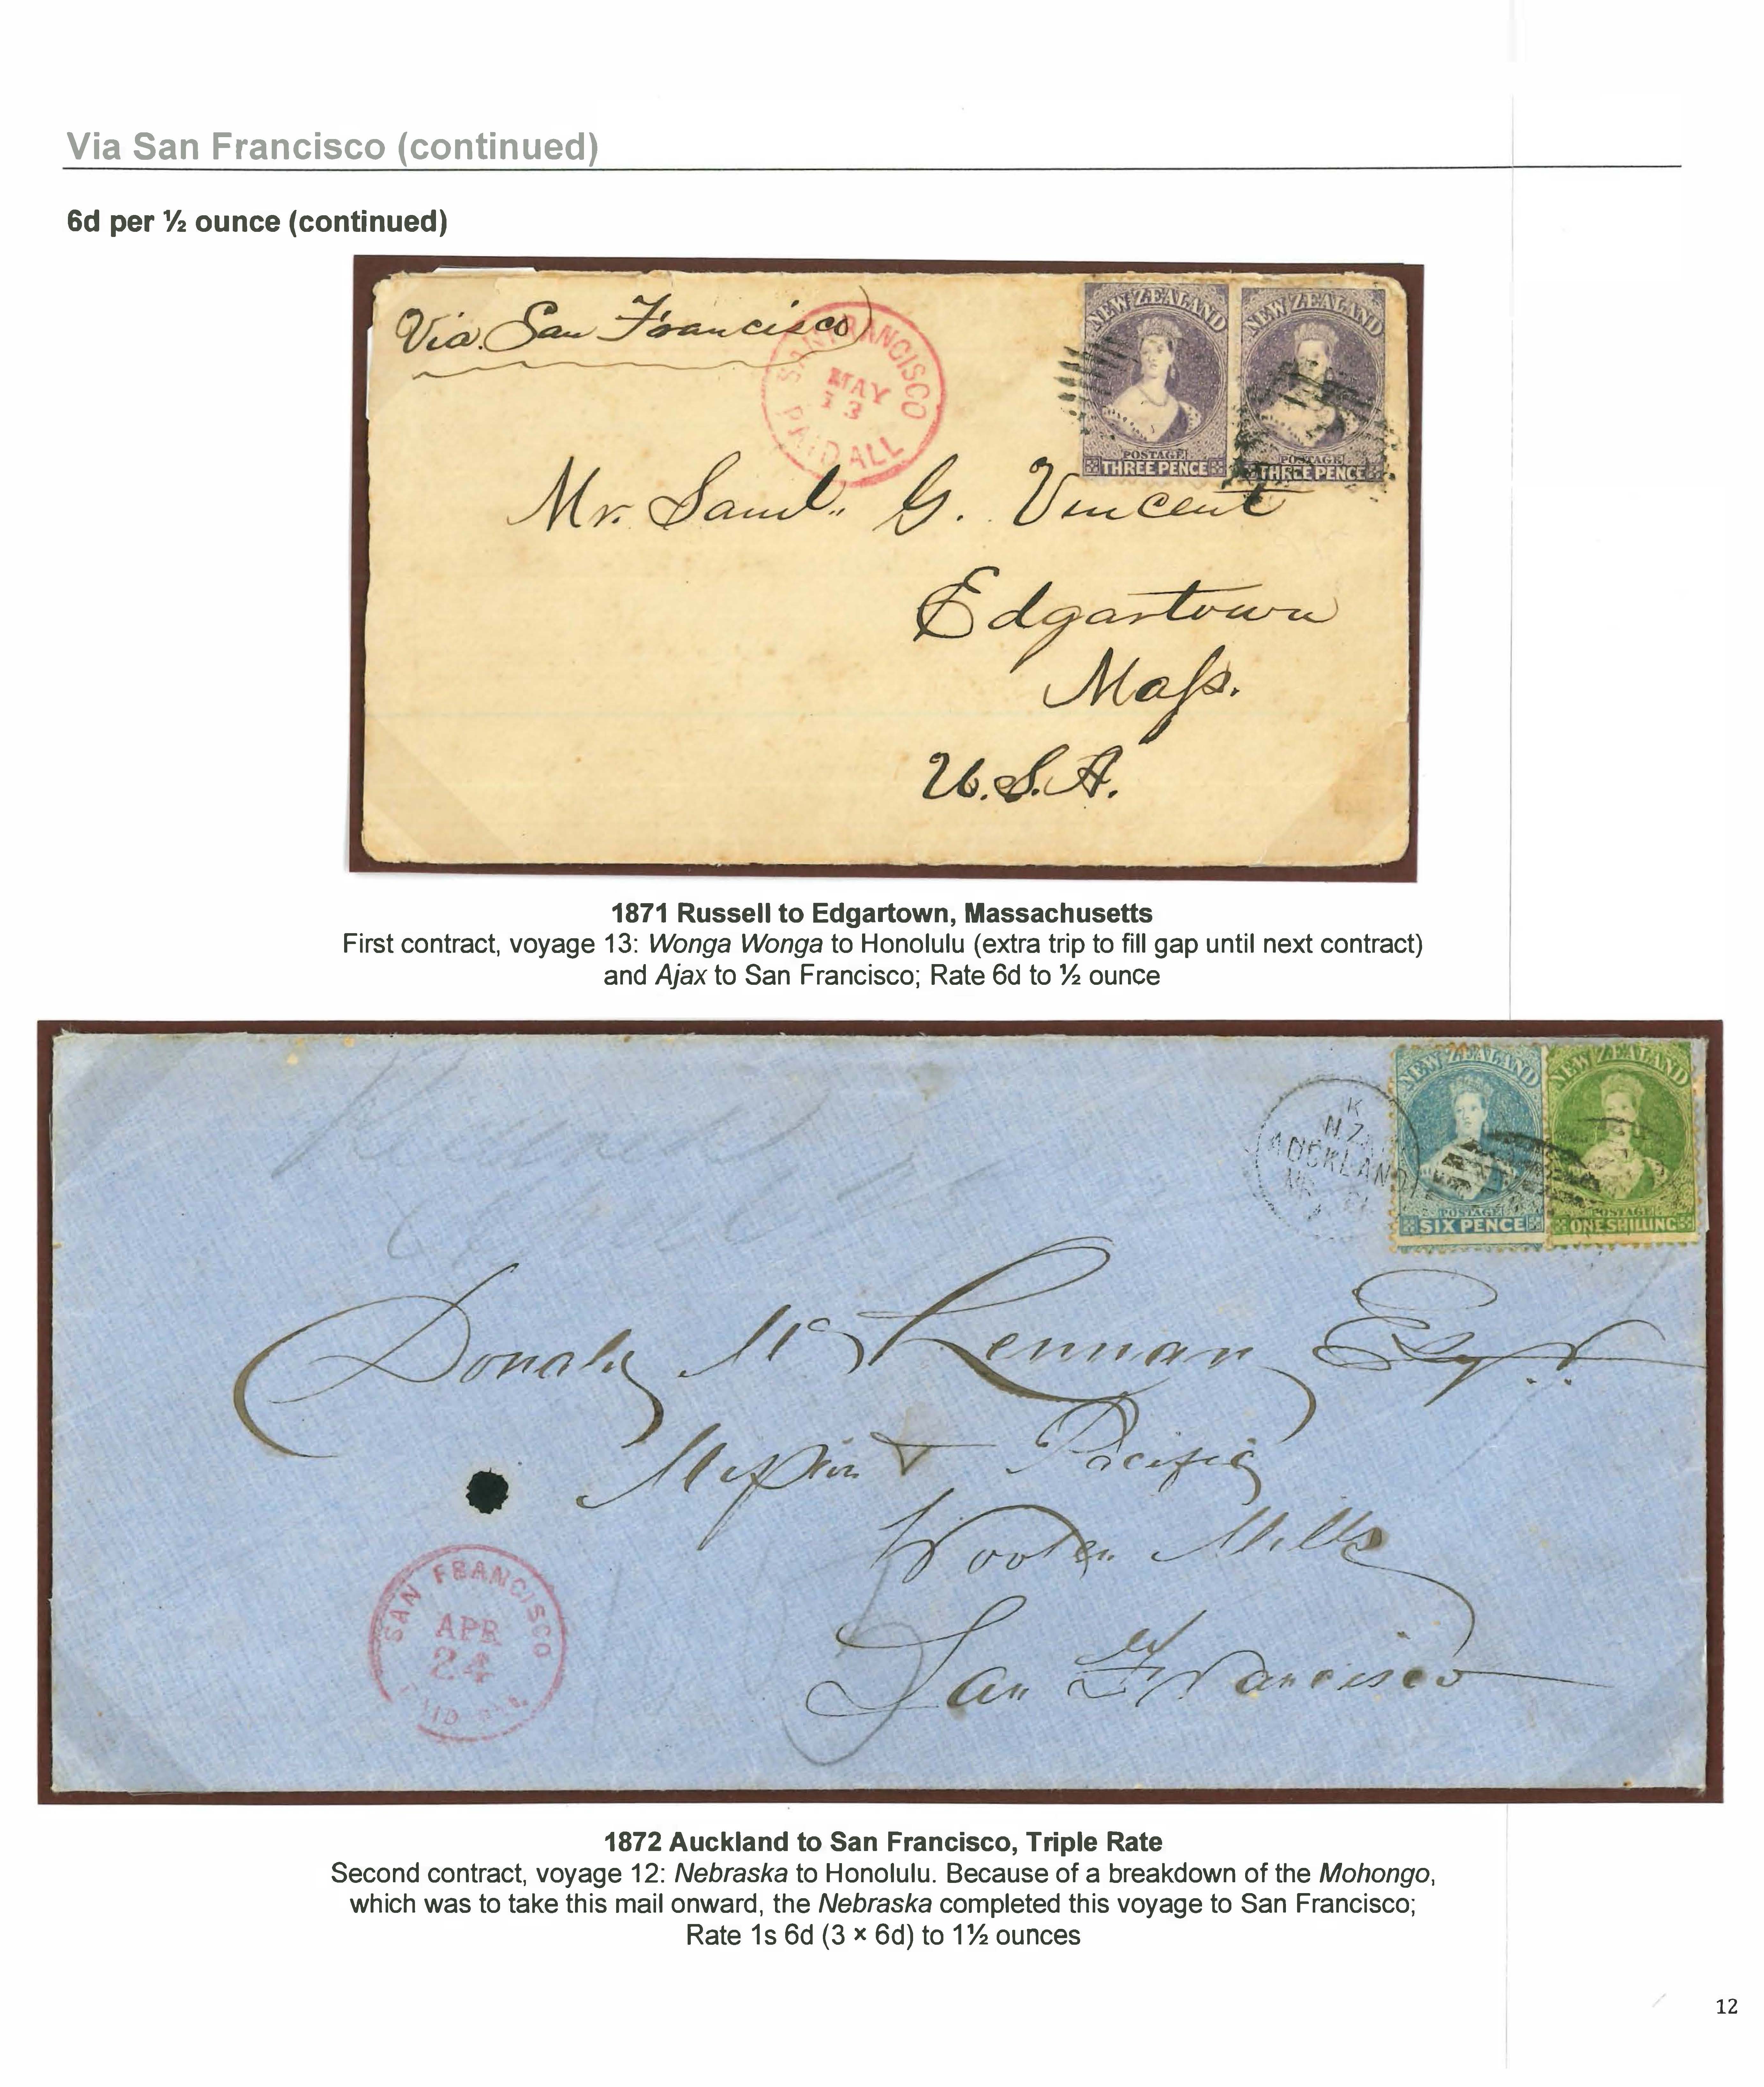 Via San Francisco (continued)
6d per ½ ounce (continued)
Via San Francisco
SAN FRANCISCO
MAY
13
PAID ALL
NEW ZEALAND
POSTAGE
THREE PENCE
NEW ZEALAND
POSTAGE
THREE PENCE
Mr. Saml. G. Vincent
Edgartown
Mass.
U.S.A.
1871 Russell to Edgartown, Massachusetts
First contract, voyage 13: Wonga Wonga to Honolulu (extra trip to fill gap until next contract)
and Ajax to San Francisco; Rate 6d to ½ ounce
K
N.Z.
AUCKLAND
NEW ZEALAND
POSTAGE
SIX PENCE
NEW ZEALAND
POSTAGE
ONE SHILLING
Donald McLennan Esqr.
Mission & Pacific
Woolen Mills
San Francisco
SAN FRANCISCO
APR
24
PAID ALL
1872 Auckland to San Francisco, Triple Rate
Second contract, voyage 12: Nebraska to Honolulu. Because of a breakdown of the Mohongo,
which was to take this mail onward, the Nebraska completed this voyage to San Francisco;
Rate 1s 6d (3 × 6d) to 1½ ounces
12